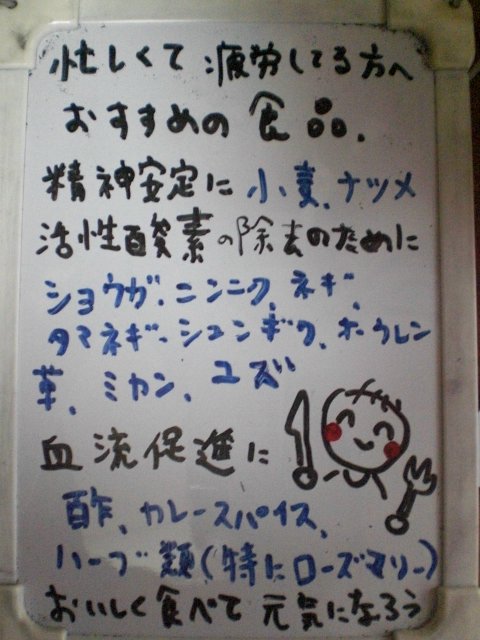 忙しくて疲労してる方へ
おすすめの食品.
精神安定に小麦、ナツメ
活性酸素の除去のために
ショウガ、ニンニク、ネギ、
タマネギ、シュンギク、ホウレン
草、ミカン、ユズ
血流促進に
酢、カレースパイス、
ハーブ類(特にローズマリー)
おいしく食べて元気になろう